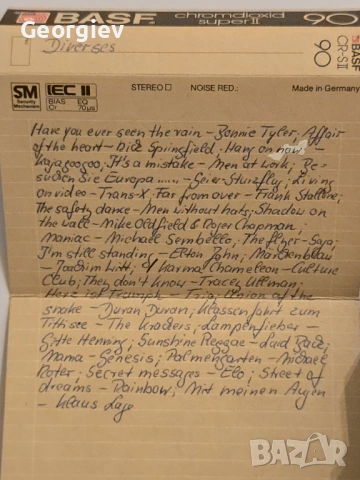 BASF chromdioxid super II 90
BASF CR-S II 90
© Georgiev
Diverses
SM Security Mechanism IEC II BIAS Cr EQ 70µs STEREO NOISE RED.: Made in Germany
Have you ever seen the rain – Bonnie Tyler; Affair
of the heart – Rick Springfield; Hang on now –
Kajagoogoo; It's a mistake – Men at work; Be-
suchen sie Europa ...... – Geier Sturzflug; Living
on video – Trans-X; Far from over – Frank Stallone;
The safety dance – Men without hats; Shadow on
the wall – Mike Oldfield & Roger Chapman;
Maniac – Michael Sembello; The flyer – Saga;
I'm still standing – Elton John; Märchenblau
– Joachim Witt; Karma Chameleon – Culture
Club; They don't know – Tracey Ullman;
Herz ist Trumpf – Trio; Union of the
snake – Duran Duran; Klassenfahrt zum
Titisee – The Kraders; Lampenfieber –
Gitte Henning; Sunshine Reggae – Laid Back;
Mama – Genesis; Palmengarten – Michael
Roter; Secret messages – Elo; Street of
dreams – Rainbow; Mit meinen Augen
– Klaus Lage
BAZAR.bg